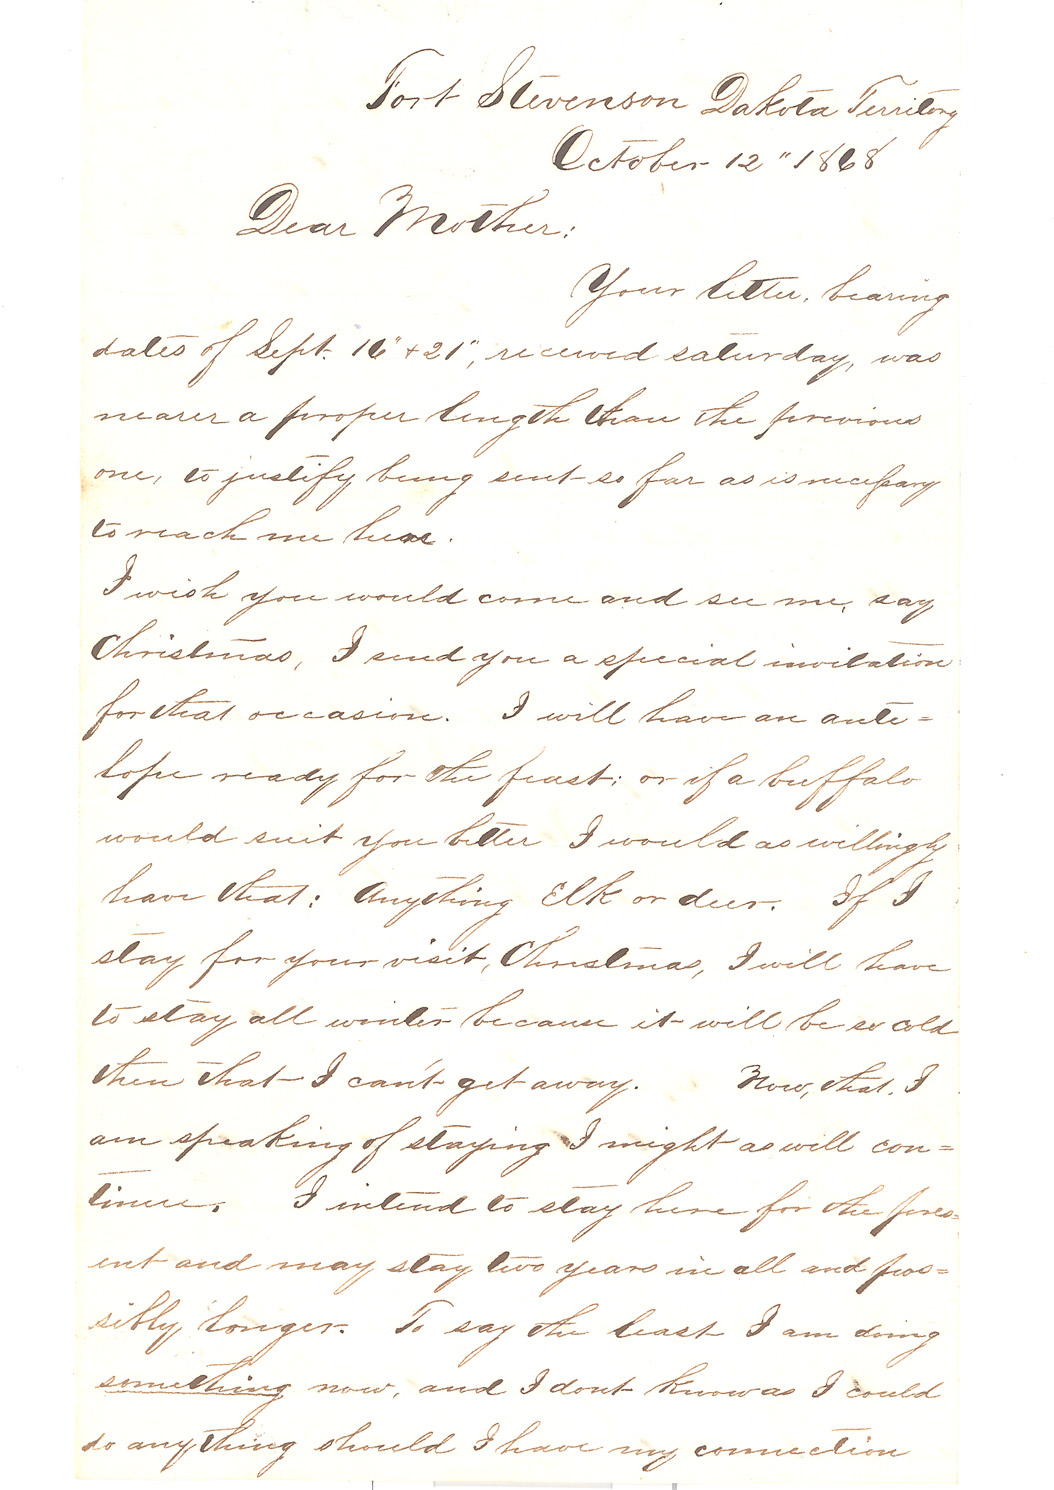 Fort Stevenson Dakota Territory
October 12" 1868
Dear Mother:
Your letter, bearing
dates of Sept. 16" + 21", received saturday, was
nearer a proper length than the previous
one, to justify being sent so far as is necessary
to reach me here.
I wish you would come and see me, say
Christmas, I send you a special invitation
for that occasion. I will have an ante=
lope ready for the feast; or if a buffalo
would suit you better I would as willingly
have that: Anything Elk or deer. If I
stay for your visit, Christmas, I will have
to stay all winter because it will be so cold
then that I can't get away. Now, that I
am speaking of staying I might as will con=
tinue. I intend to stay here for the pres=
ent and may stay two years in all and pos=
sibly longer. To say the least I am doing
something now, and I dont know as I could
do anything should I have my connection